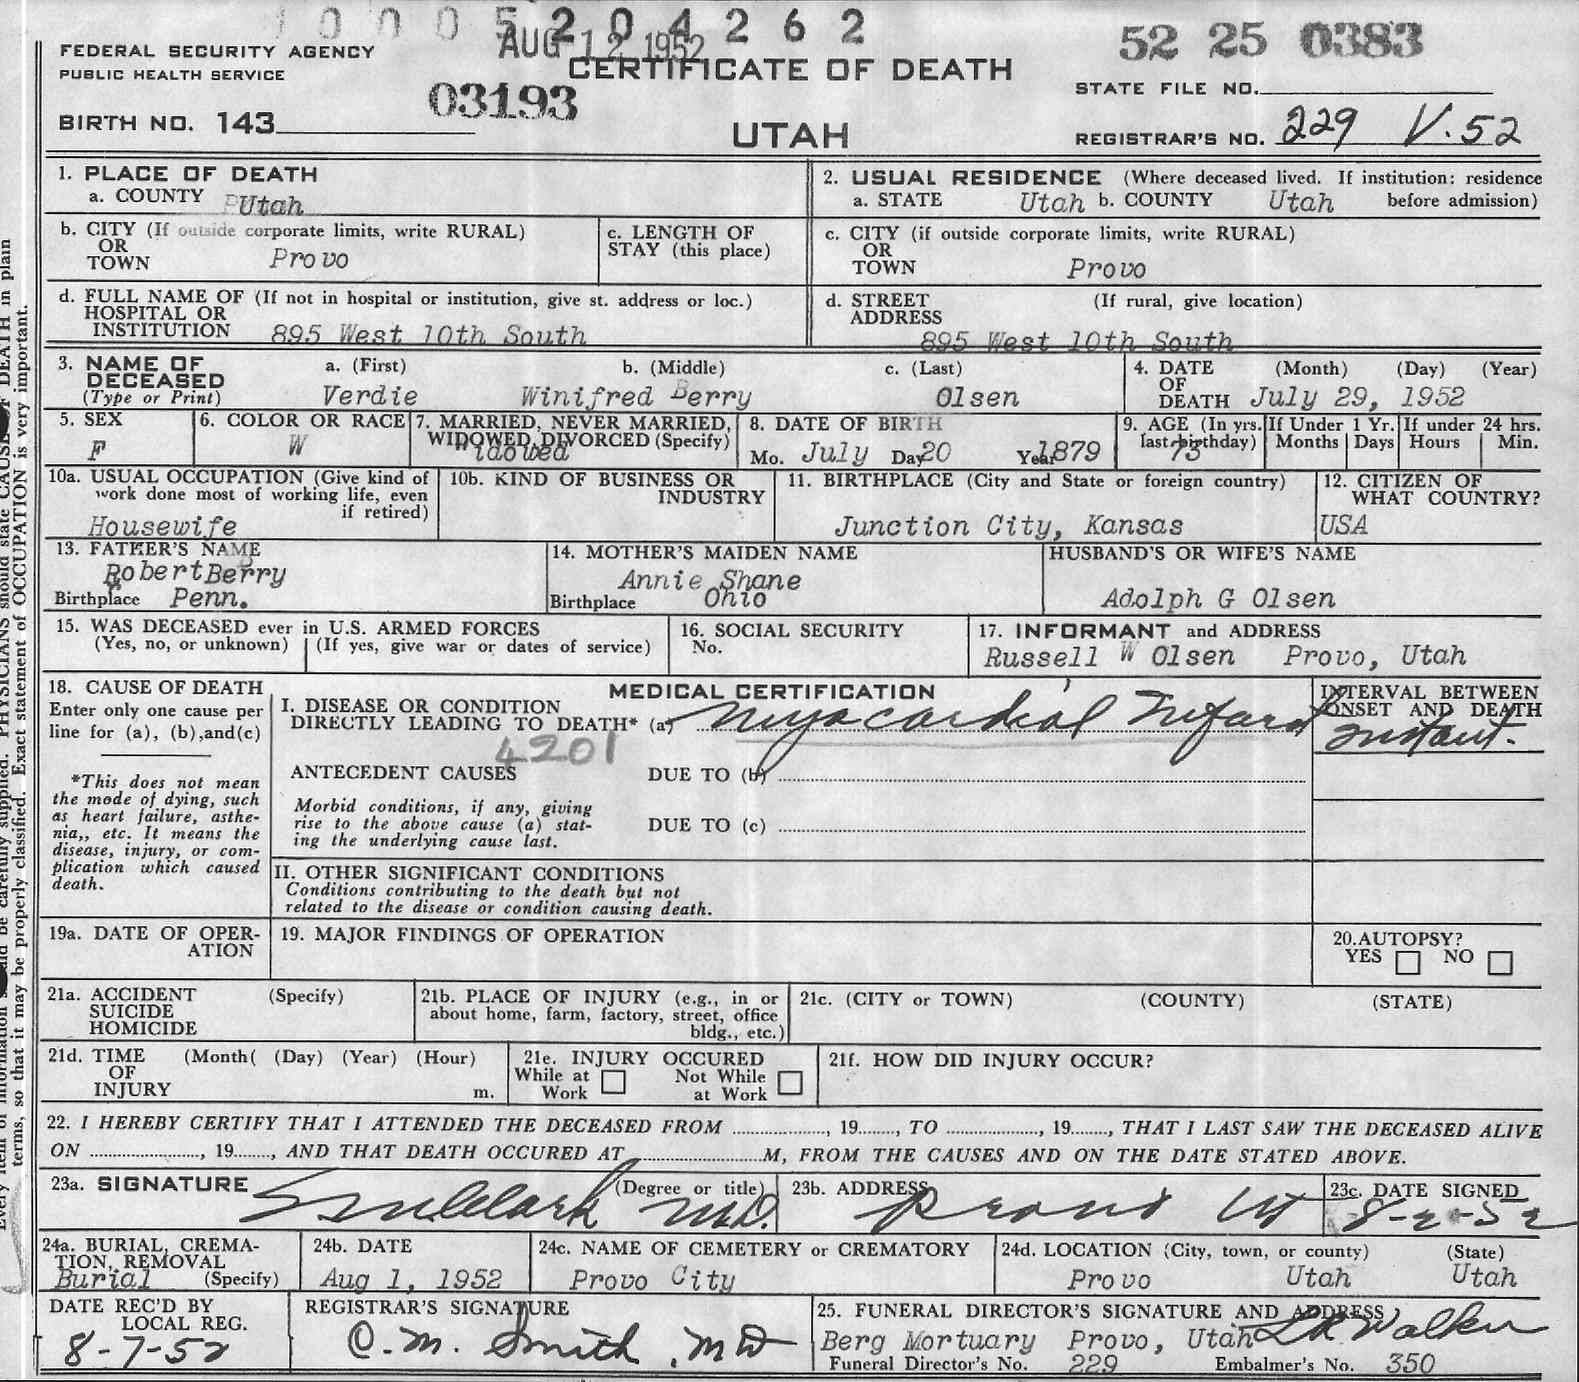 1 0 0 0 5 2 0 4 2 6 2
AUG 12 1952
52 25 0383
FEDERAL SECURITY AGENCY
PUBLIC HEALTH SERVICE
CERTIFICATE OF DEATH
STATE FILE NO.
03193
BIRTH NO. 143
UTAH
REGISTRAR'S NO. 229 V.52
1. PLACE OF DEATH
a. COUNTY Utah
2. USUAL RESIDENCE (Where deceased lived. If institution: residence
a. STATE Utah b. COUNTY Utah before admission)
b. CITY (If outside corporate limits, write RURAL)
OR
TOWN Provo
c. LENGTH OF
STAY (this place)
c. CITY (if outside corporate limits, write RURAL)
OR
TOWN Provo
d. FULL NAME OF (If not in hospital or institution, give st. address or loc.)
HOSPITAL OR
INSTITUTION 895 West 10th South
d. STREET (If rural, give location)
ADDRESS
895 West 10th South
3. NAME OF a. (First) b. (Middle) c. (Last)
DECEASED
(Type or Print) Verdie Winifred Berry Olsen
4. DATE (Month) (Day) (Year)
OF
DEATH July 29, 1952
5. SEX
F
6. COLOR OR RACE
W
7. MARRIED, NEVER MARRIED,
WIDOWED, DIVORCED (Specify)
Widowed
8. DATE OF BIRTH
Mo. July Day 20 Year 1879
9. AGE (In yrs.
last birthday)
73
If Under 1 Yr.
Months Days
If under 24 hrs.
Hours Min.
10a. USUAL OCCUPATION (Give kind of
work done most of working life, even
if retired)
Housewife
10b. KIND OF BUSINESS OR
INDUSTRY
11. BIRTHPLACE (City and State or foreign country)
Junction City, Kansas
12. CITIZEN OF
WHAT COUNTRY?
USA
13. FATHER'S NAME
Robert Berry
Birthplace Penn.
14. MOTHER'S MAIDEN NAME
Annie Shane
Birthplace Ohio
HUSBAND'S OR WIFE'S NAME
Adolph G Olsen
15. WAS DECEASED ever in U.S. ARMED FORCES
(Yes, no, or unknown) (If yes, give war or dates of service)
16. SOCIAL SECURITY
No.
17. INFORMANT and ADDRESS
Russell W Olsen Provo, Utah
18. CAUSE OF DEATH
Enter only one cause per
line for (a), (b), and (c)
*This does not mean
the mode of dying, such
as heart failure, asthe-
nia,, etc. It means the
disease, injury, or com-
plication which caused
death.
MEDICAL CERTIFICATION
I. DISEASE OR CONDITION
DIRECTLY LEADING TO DEATH* (a) Myocardial Infarct
4201
ANTECEDENT CAUSES DUE TO (b)
Morbid conditions, if any, giving
rise to the above cause (a) stat-
ing the underlying cause last.
DUE TO (c)
INTERVAL BETWEEN
ONSET AND DEATH
Instant.
II. OTHER SIGNIFICANT CONDITIONS
Conditions contributing to the death but not
related to the disease or condition causing death.
19a. DATE OF OPER-
ATION
19. MAJOR FINDINGS OF OPERATION
20. AUTOPSY?
YES NO
21a. ACCIDENT (Specify)
SUICIDE
HOMICIDE
21b. PLACE OF INJURY (e.g., in or
about home, farm, factory, street, office
bldg., etc.)
21c. (CITY or TOWN) (COUNTY) (STATE)
21d. TIME (Month( (Day) (Year) (Hour)
OF
INJURY m.
21e. INJURY OCCURED
While at Not While
Work at Work
21f. HOW DID INJURY OCCUR?
22. I HEREBY CERTIFY THAT I ATTENDED THE DECEASED FROM ..............., 19......., TO ..............., 19......., THAT I LAST SAW THE DECEASED ALIVE
ON ..................., 19......., AND THAT DEATH OCCURED AT ....................M, FROM THE CAUSES AND ON THE DATE STATED ABOVE.
23a. SIGNATURE (Degree or title)
Clark M.D.
23b. ADDRESS
Provo Ut
23c. DATE SIGNED
8-2-52
24a. BURIAL, CREMA-
TION, REMOVAL
Burial (Specify)
24b. DATE
Aug 1, 1952
24c. NAME OF CEMETERY or CREMATORY
Provo City
24d. LOCATION (City, town, or county) (State)
Provo Utah Utah
DATE REC'D BY
LOCAL REG.
8-7-52
REGISTRAR'S SIGNATURE
C.M. Smith, MD
25. FUNERAL DIRECTOR'S SIGNATURE AND ADDRESS
Berg Mortuary Provo, Utah Walker
Funeral Director's No. 229 Embalmer's No. 350
terms, so that it may be properly classified. Exact statement of OCCUPATION is very important.